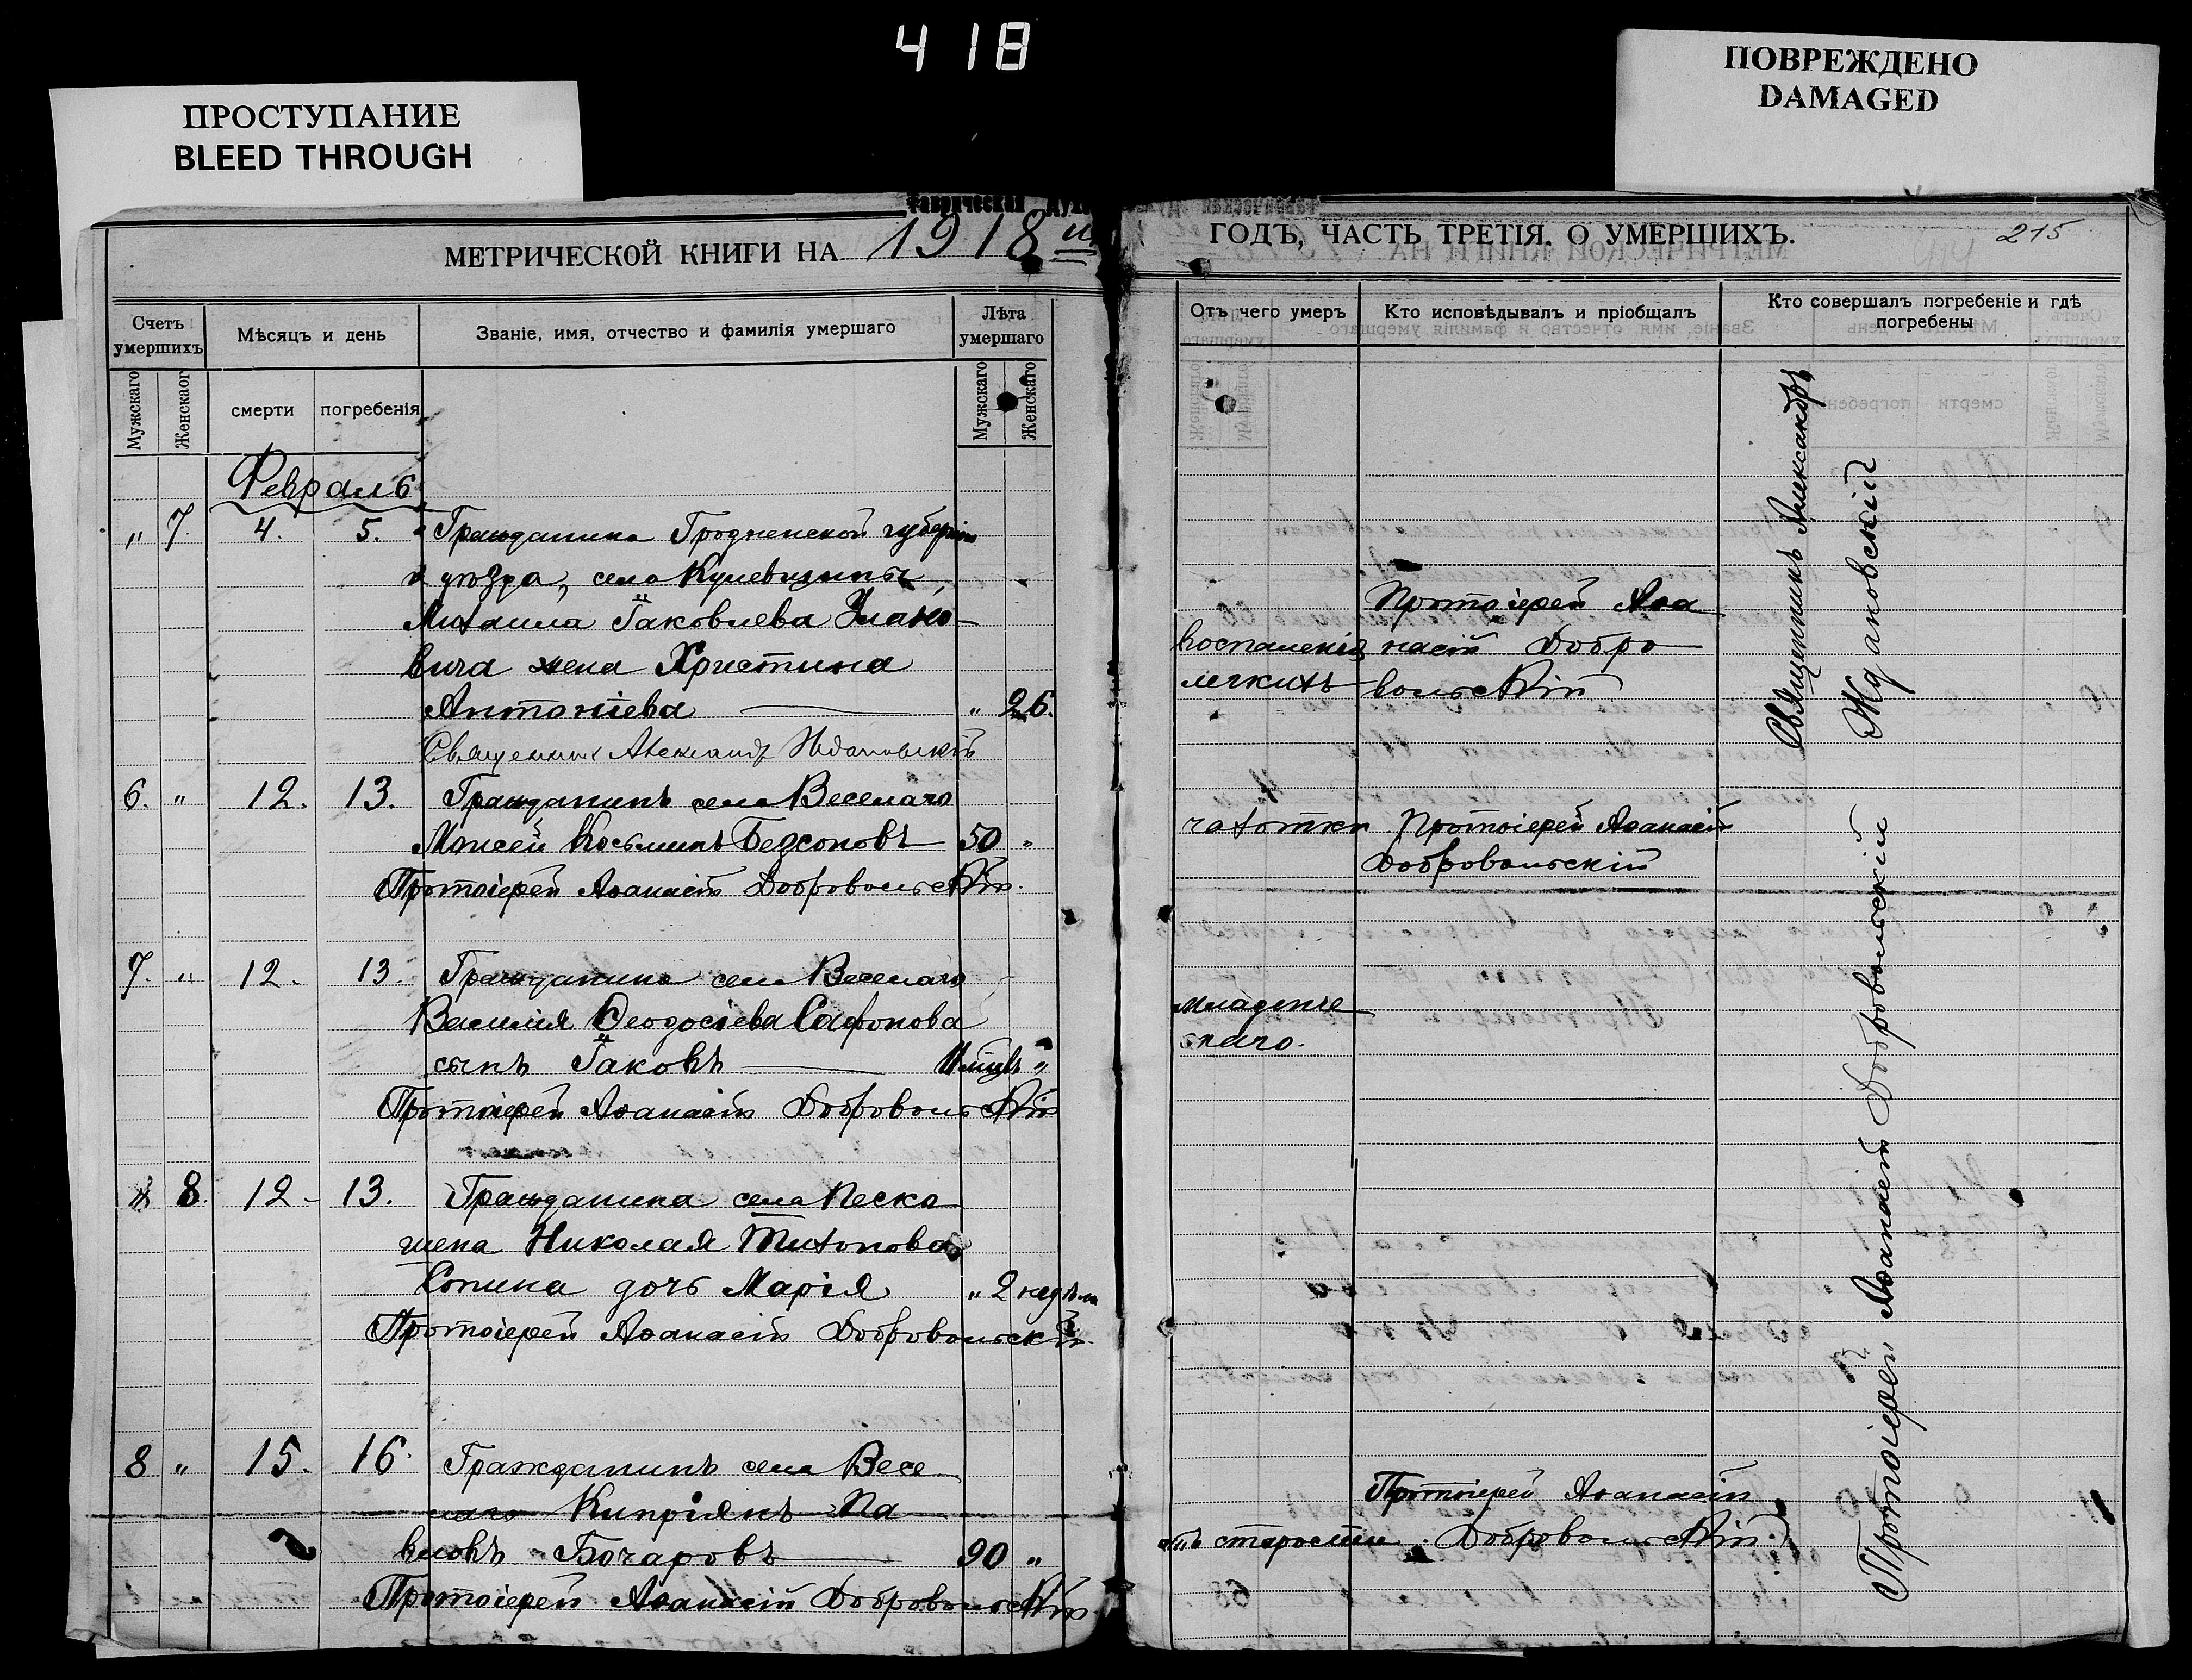 418
ПРОСТУПАНИЕ
BLEED THROUGH
ПОВРЕЖДЕНО
DAMAGED
МЕТРИЧЕСКОЙ КНИГИ НА 1918й
ГОДЪ, ЧАСТЬ ТРЕТІЯ. О УМЕРШИХЪ.
215
Счетъ умершихъ
Мѣсяцъ и день
Званіе, имя, отчество и фамилія умершаго
Лѣта умершаго
Мужскаго
Женскаог
смерти
погребенія
Мужскаго
Женскаго
Отъ чего умеръ
Кто исповѣдывалъ и пріобщалъ
Кто совершалъ погребеніе и гдѣ погребены
Февраль
„ 7. 4. 5. Гражданина Гродненской губерніи
и уѣзда, села
Михаила Іаковлева Улано
вича жена Христина
Антоніева „ 26.
Священникъ Александр Ждановскій
воспаленія
легкихъ
Протоіерей Аѳа
насій Добро
вольскій
6. „ 12. 13. Гражданинъ села Веселаго
Моисей Косьминъ Безсоновъ 50 „
Протоіерей Аѳанасій Добровольскій.
чахотки
Протоіерей Аѳанасій
Добровольскій
7. „ 12. 13. Гражданина села Веселаго
Василія Ѳеодосіева Сафонова
сынъ Іаковъ „
Протоіерей Аѳанасій Добровольскій
младенче
скаго.
8. 12. 13. Гражданина села Песко
шена Николая Тихонова
Сопина дочь Марія „ 2 недѣли
Протоіерей Аѳанасій Добровольскій
8 „ 15. 16. Гражданинъ села Весе
лаго Кипріянъ Па
вловъ Бочаровъ 90 „
Протоіерей Аѳанасій Добровольскій
отъ старости
Протоіерей Аѳанасій
Добровольскій.
Священникъ Александръ
Ждановскій
Протоіерей Аѳанасій Добровольскій